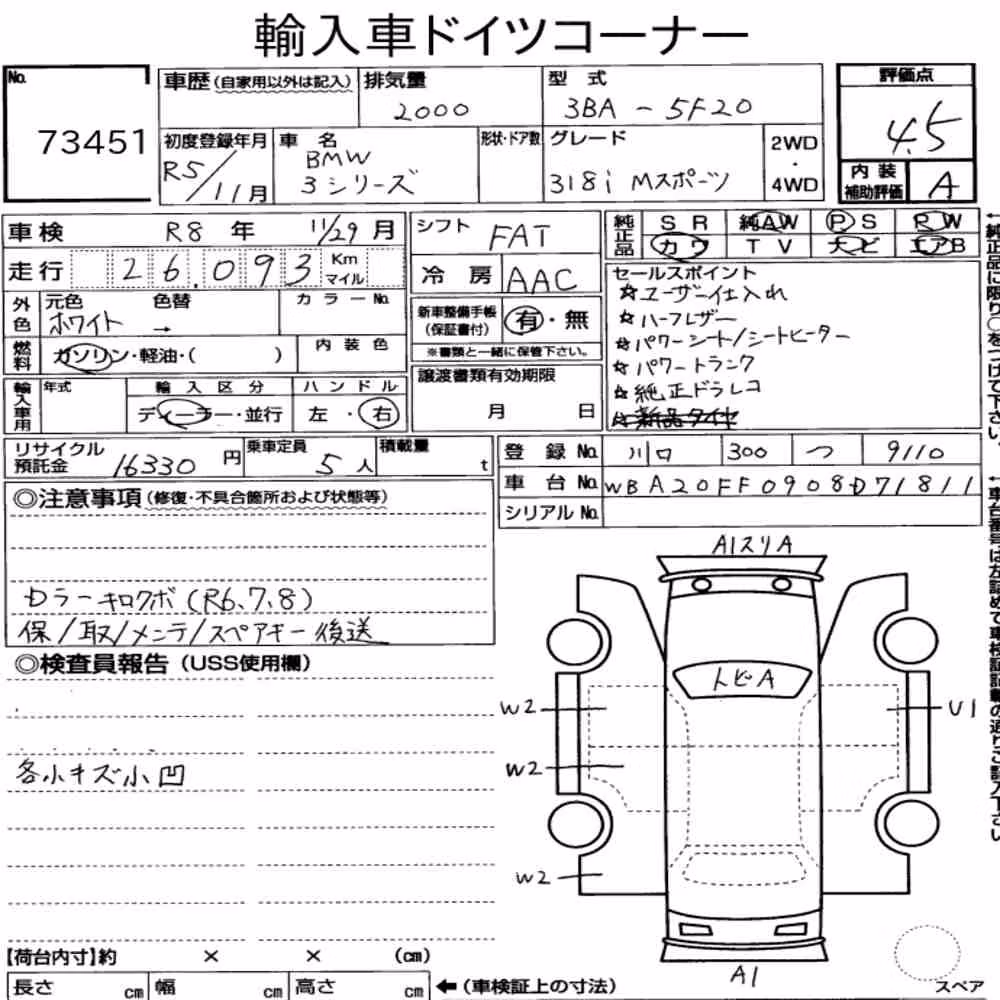 輸入車ドイツコーナー
No. 73451
車歴(自家用以外は記入) 排気量 2000 型式 3BA-5F20 評価点 4.5
初度登録年月 R5/11月 車名 BMW 3シリーズ 形状・ドア数 グレード 318i Mスポーツ 2WD・4WD 内装補助評価 A
車検 R8年 11/29月 シフト FAT 純正品 SR 純AW PS PW
走行 26.093 Km マイル 冷房 AAC カワ TV ナビ エアB
外色 元色 ホワイト 色替 → カラーNo. 新車整備手帳(保証書付) 有・無
燃料 ガソリン・軽油・( ) 内装色 ※書類と一緒に保管下さい。
輸入車用 年式 輸入区分 ディーラー・並行 ハンドル 左・右 譲渡書類有効期限 月 日
セールスポイント
☆ユーザー仕入れ
☆ハーフレザー
☆パワーシート/シートヒーター
☆パワートランク
☆純正ドラレコ
☆新品タイヤ
リサイクル預託金 16330円 乗車定員 5人 積載量 t
登録No. 川口 300 つ 9110
車台No. WBA20FF0908D71811
シリアルNo.
◎注意事項(修復・不具合箇所および状態等)
Dラーキロクボ(R6.7.8)
保/取/メンテ/スペアキー後送
◎検査員報告(USS使用欄)
各小キズ小凹
A1スリA
トビA
W2
U1
W2
W2
A1
スペア
【荷台内寸】約 × × (cm)
長さ cm 幅 cm 高さ cm ←(車検証上の寸法)
←純正品に限り○をつけて下さい。
←車台番号は左詰めで車検証記載の通りご記入下さい